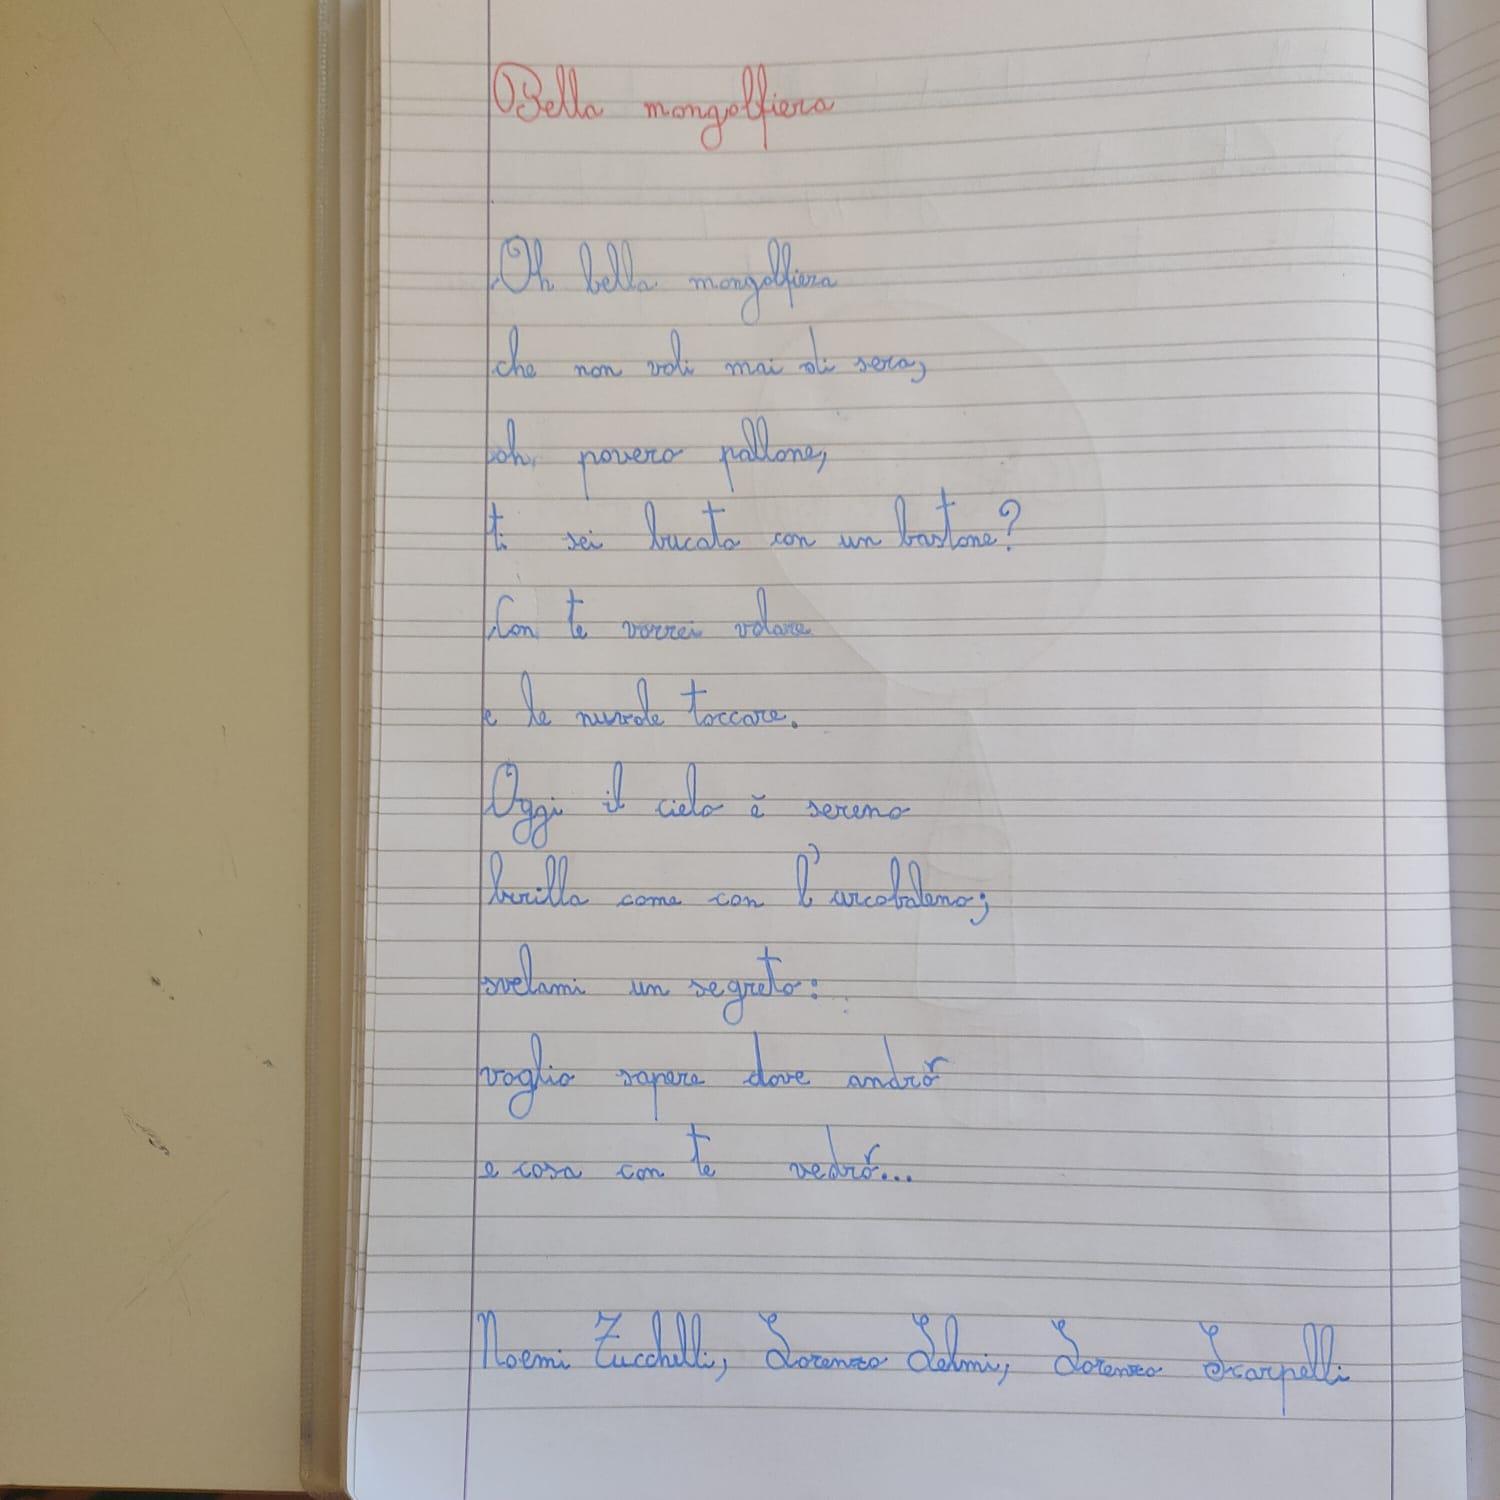 Bella mongolfiera
Oh bella mongolfiera
che non voli mai di sera,
oh, povero pallone,
ti sei bucato con un bastone?
Con te vorrei volare
e le nuvole toccare.
Oggi il cielo è sereno
brilla come con l'arcobaleno;
svelami un segreto:
voglio sapere dove andrò
e cosa con te vedrò...
Noemi Zucchelli, Lorenzo Selmi, Lorenzo Scarpelli